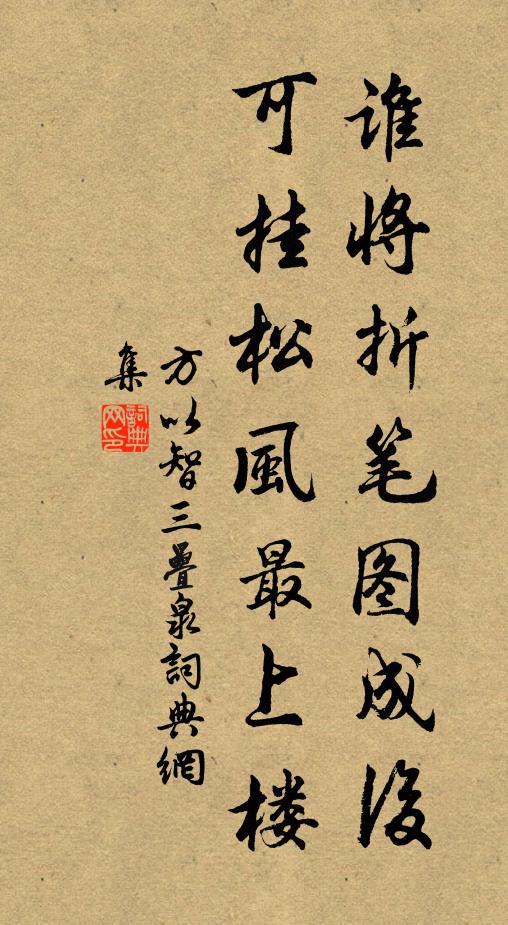 谁将折笔图成後
可挂松風最上楼
方以智三疊泉詞典網
集
詞典网印